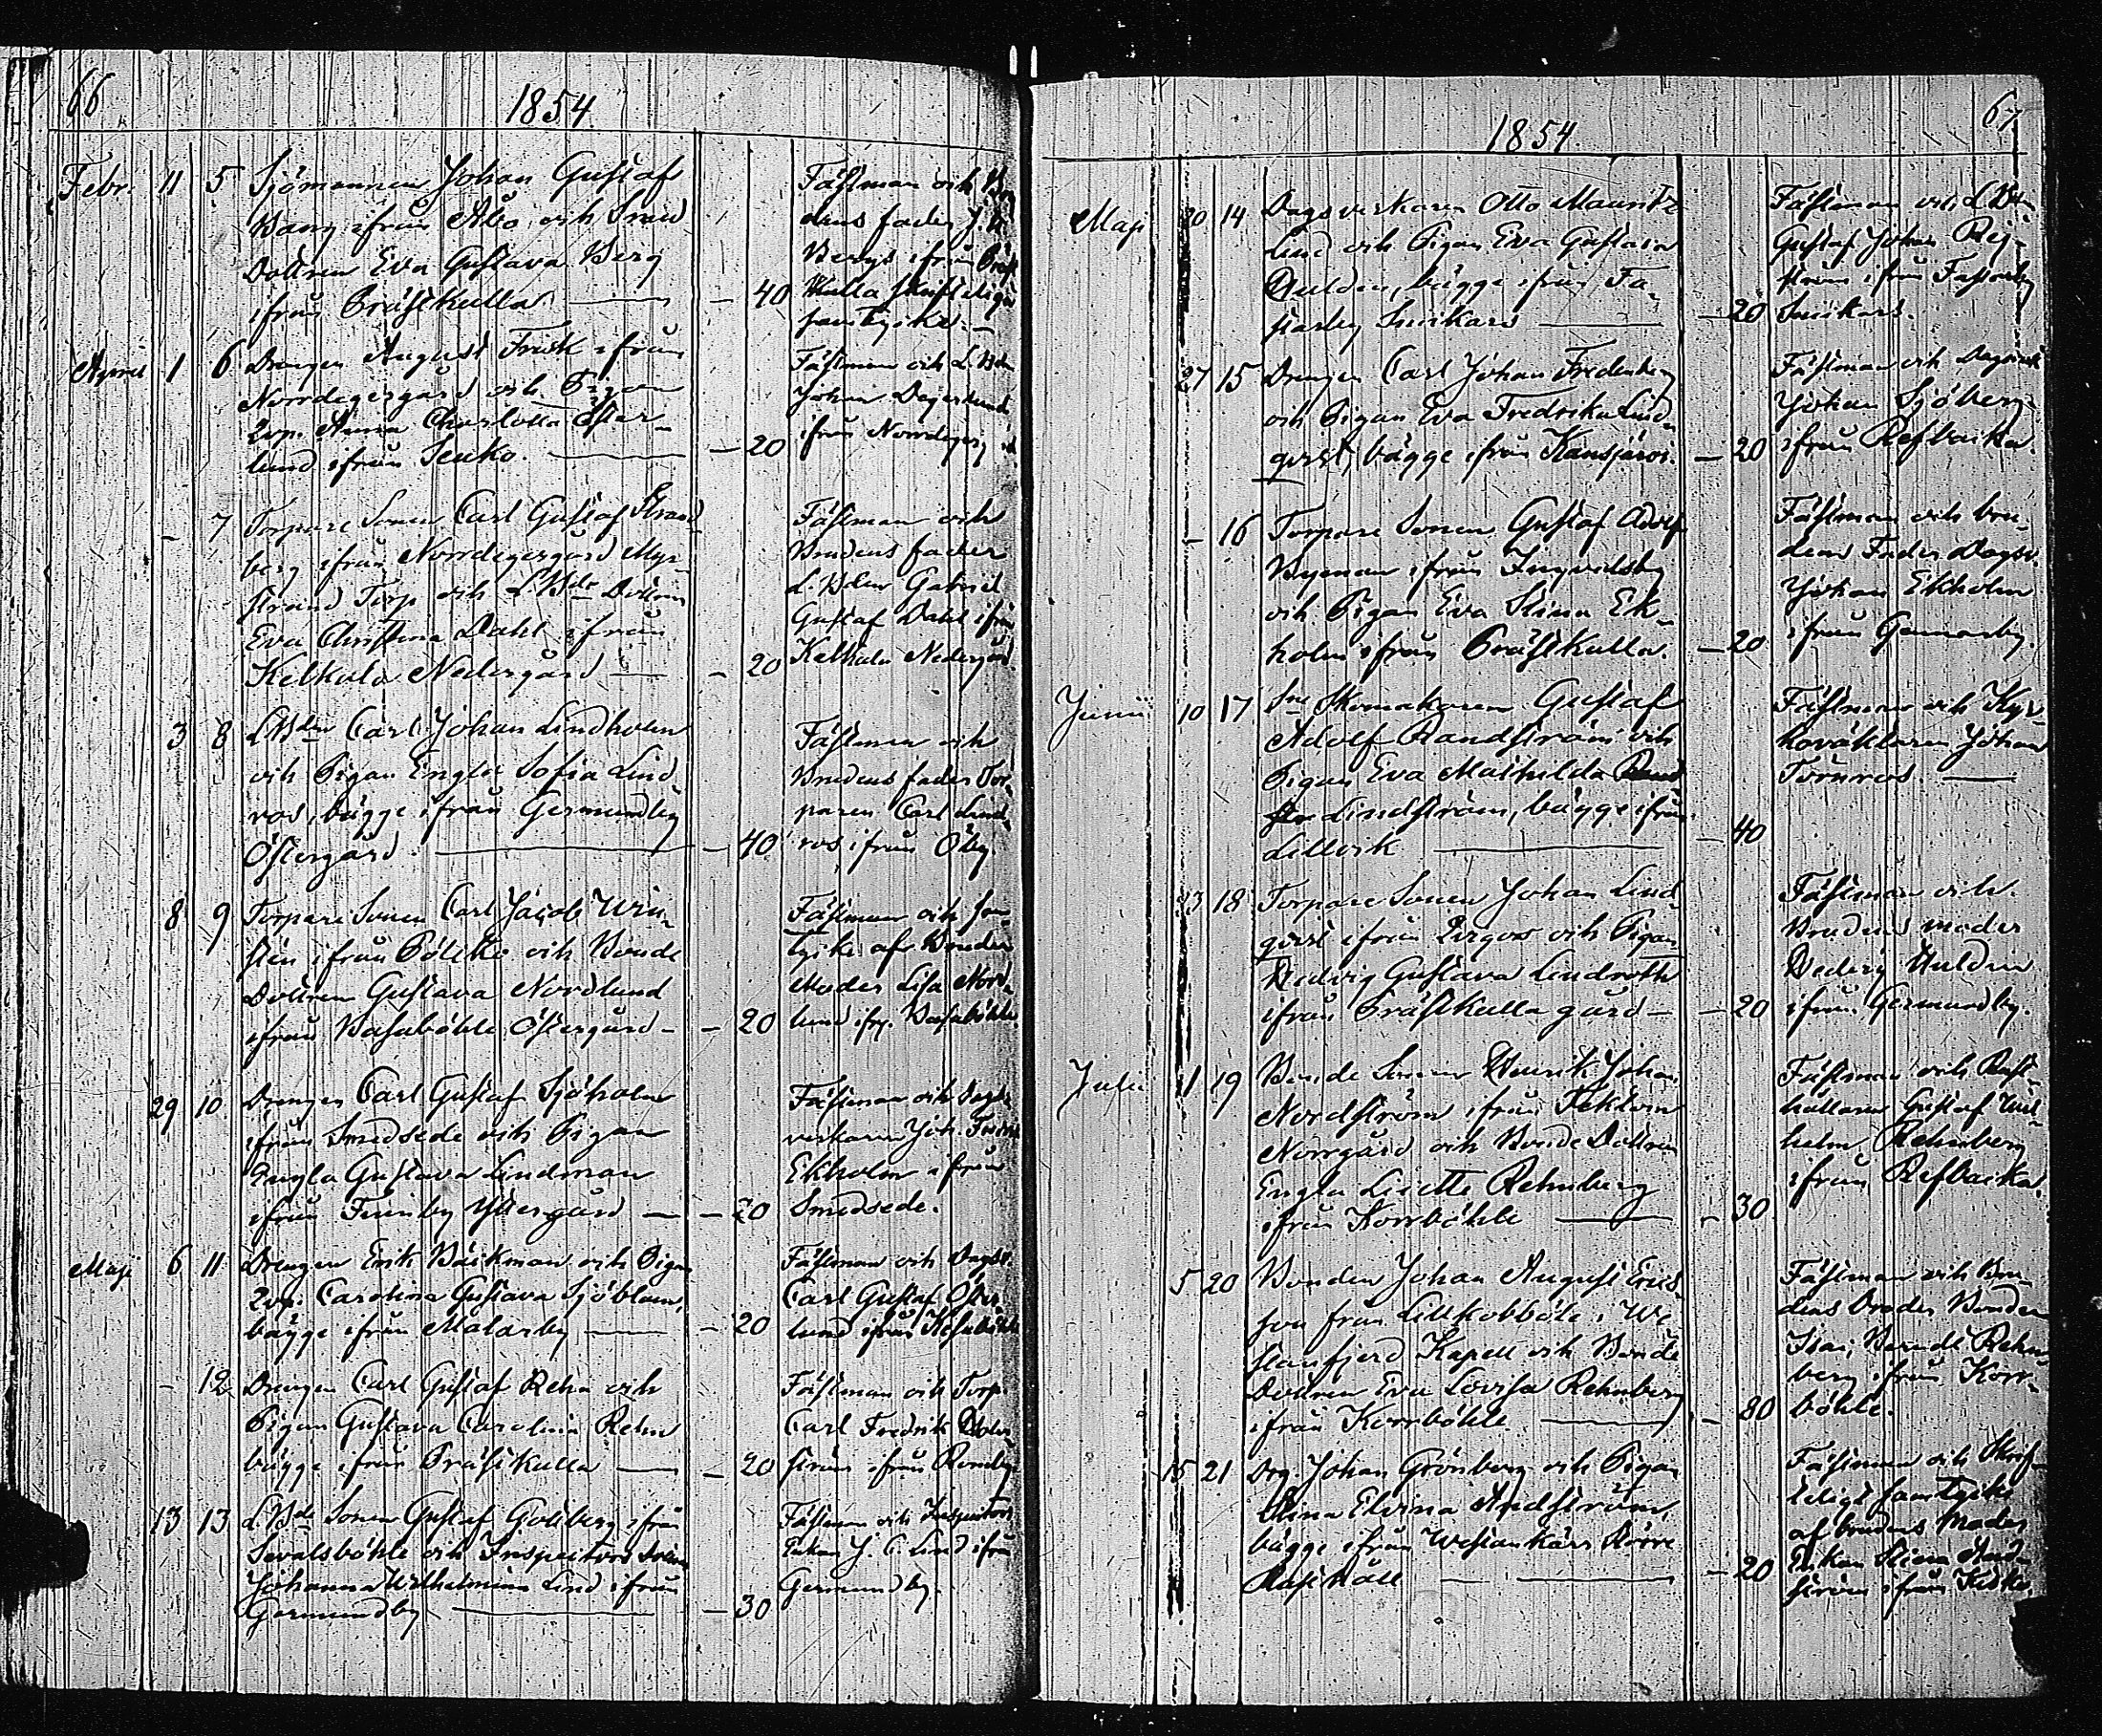 66
1854.
Febr. 11 5 Sjömannen Johan Gustaf
Berg ifrån Åbo och
Dottren Eva Gustava Berg
ifrån Prästkulla — 40
Fästman och
dens fader J.
Bergs ifrån
kulla skriftelige
samtycke. —
April 1 6 Drengen August Frisk ifrån
Norrdegergård och Pigan
Anna Charlotta Öster-
lund ifrån Senko. — 20
Fästman och
Johan
ifrån
- 7 Torpare Sonen Carl Gustaf Strand-
berg ifrån Norrdegergård Myr-
strand Torp och L.Bde Dottren
Eva Christina Dahl ifrån
Kelkala Nedergård — 20
Fästman och
Brudens fader
L. Bden Gabriel
Gustaf Dahl ifrån
Kelkala Nedergård.
3 8 LBden Carl Johan Lindholm
och Pigan Engla Sofia Lind-
ros, bägge ifrån Germundby
Östergård. — 40
Fästman och
Brudens fader Tor-
paren Carl Lind-
ros, ifrån Öby.
8 9 Torpare Sonen Carl Jacob Win-
stén ifrån Böleko och Bonde
Dottren Gustava Nordlund
ifrån Basaböhle Östergård — 20
Fästman och sam-
tycke af Bruden
Moder Lisa Nord-
lund ifr. Basaböhle.
29 10 Drengen Carl Gustaf Sjöholm
ifrån Smedsede och Pigan
Engla Gustava Lindman
ifrån Finnby Yttergård — 20
Fästman och Dags-
verkaren Joh. Fredrik
Ekholm ifrån
Smedsede.
Maji 6 11 Drengen Erik Bäckman och Pigan
Carolina Gustava Sjöblom,
bägge ifrån Malarby — 20
Fästman och Dagsv.
Carl Gustaf Öster-
lund ifrån
- 12 Drengen Carl Gustaf Rehn och
Pigan Gustava Carolina Rehn
bägge ifrån Prästkulla — 20
Fästman och Torp.
Carl Fredrik Holm-
ström ifrån Romby
13 13 L.Bde Sonen Gustaf Goldberg ifrån
Sevalsböhle och Inspectors
Johanna Wilhelmina Lind ifrån
Germundby — 30
Fästman och Inspectors
Enkan J. C. Lind ifrån
Germundby.
67
1854.
Maji 20 14 Dagsverkaren Otto Mauritz
Lind och Pigan Eva Gustava
Hulden, bägge ifrån Fa-
starby Snickars — 20
Fästman och L.Bden
Gustaf Johan Rej-
ström ifrån Fastarby
Snickars.
27 15 Drengen Carl Johan Fredenberg
och Pigan Eva Fredrika Lind-
qvist, bägge ifrån Kansjärvi. — 20
Fästman och
Johan Sjöberg
ifrån Refbacka.
- 16 Torpare Sonen Gustaf Adolf
Byman ifrån Ingvaldsby
och Pigan Eva Stina Ek-
holm ifrån Prästkulla. — 20
Fästman och bru-
dens Fader Dagsv.
Johan Ekholm
ifrån Gennarby.
Junii 10 17 Skomakaren Gustaf
Adolf Randström och
Pigan Eva Mathilda Rand
str Lindström, bägge ifrån
Lillvik — 40
Fästman och Kyr-
kovaktaren Johan
Törnroos. —
23 18 Torpare Sonen Johan Lind-
qvist ifrån och Pigan
Hedvig Gustava Lindroth
ifrån Prästkulla gård — 20
Fästman och
Brudens moder
Hedvig Huldin
ifrån Germundby.
Julii 1 19 Bonde Sonen Henrik Johan
Nordström ifrån Tecktom
Norrgård och Bonde Dottren
Engla Lisette Rehnberg
ifrån Korrböhle — 30
Fästman och Rust-
hållaren Gustaf Wil-
helm Rehnberg
ifrån Refbacka.
5 20 Bonden Johan August Erics-
son från Lillkobböle i We
stanfjerd Kapell och Bonde
Dottren Eva Lovisa Rehnberg
ifrån Korrböhle. — 80
Fästman och Bru-
dens Broder Bonden
Isac Berndt Rehn-
berg ifrån Korr-
böhle.
15 21 Drg. Johan Grönberg och Pigan
Stina Elvina Andström,
bägge ifrån Westankärr Större
Rasthåll — 20
Fästman och Skrif-
teligt samtycke
af brudens Moder
Enkan Stina And-
ström ifrån